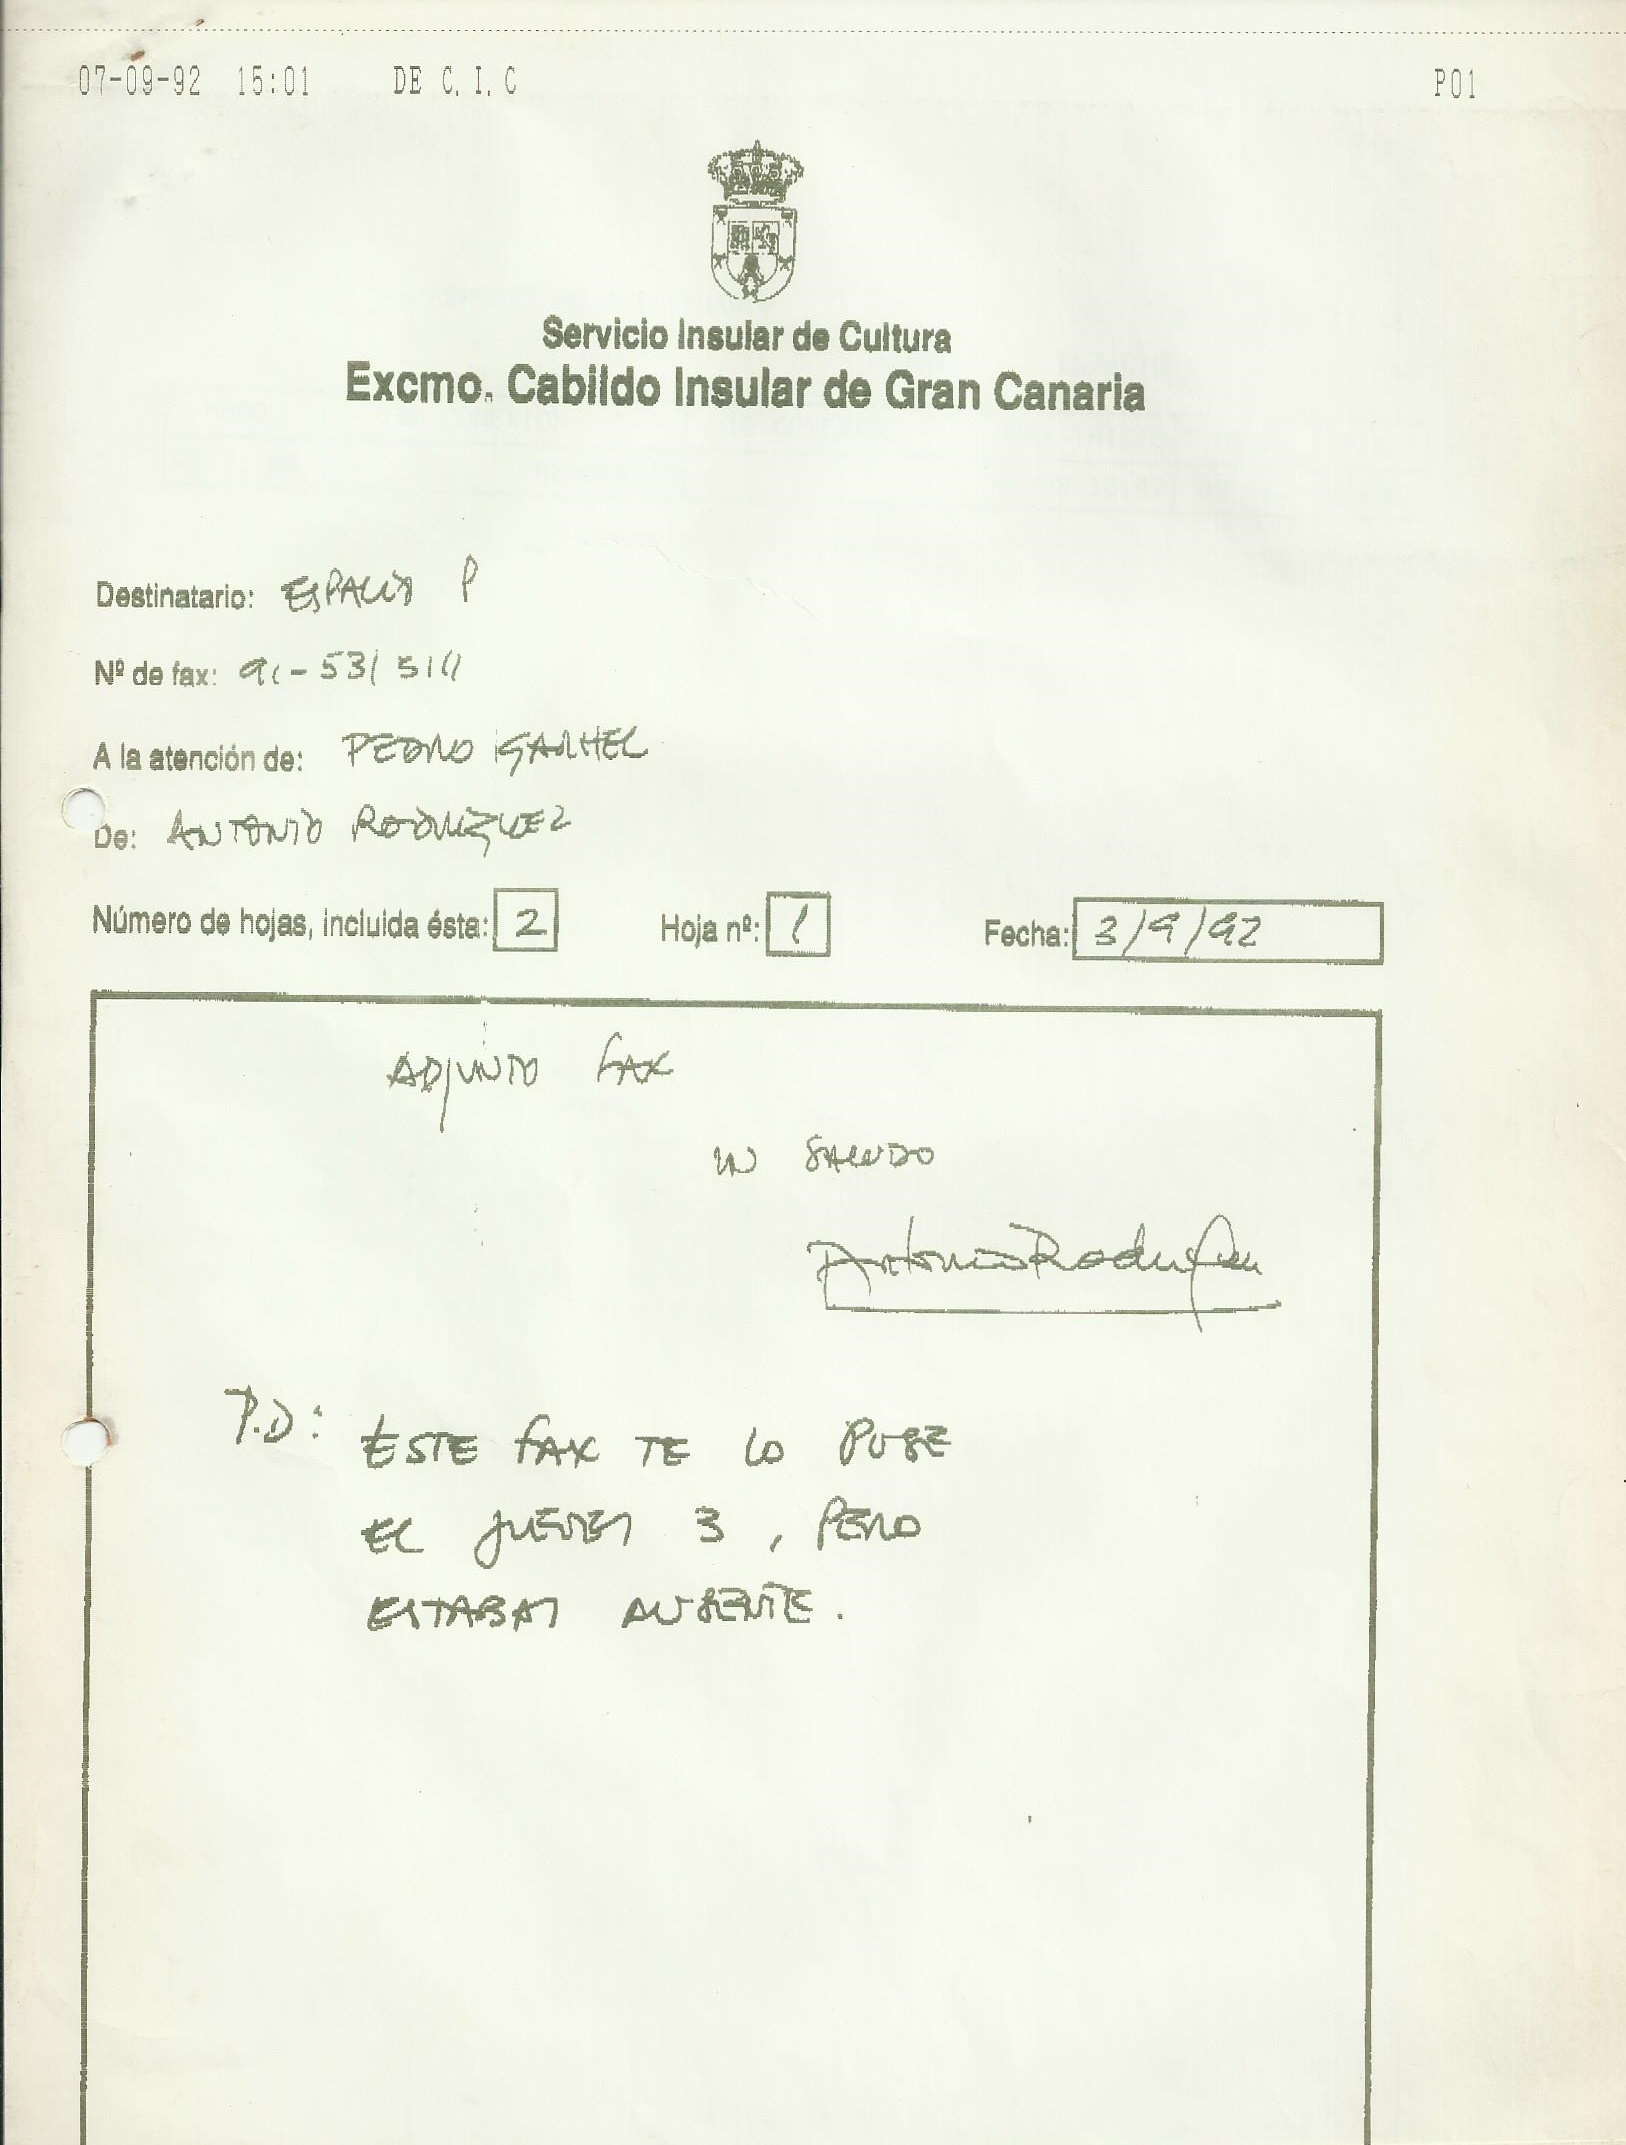 07-09-92 15:01 DE C.I.C P01
Servicio Insular de Cultura
Excmo. Cabildo Insular de Gran Canaria
Destinatario: ESPACIO P
Nº de fax: 91-531 5111
A la atención de: PEDRO GARHEL
De: ANTONIO RODRIGUEZ
Número de hojas, incluida ésta: 2 Hoja nº: 1 Fecha: 3/9/92
ADJUNTO FAX
UN SALUDO
Antonio Rodríguez
P.D: ESTE FAX TE LO PUSE
EL JUEVES 3, PERO
ESTABAS AUSENTE.